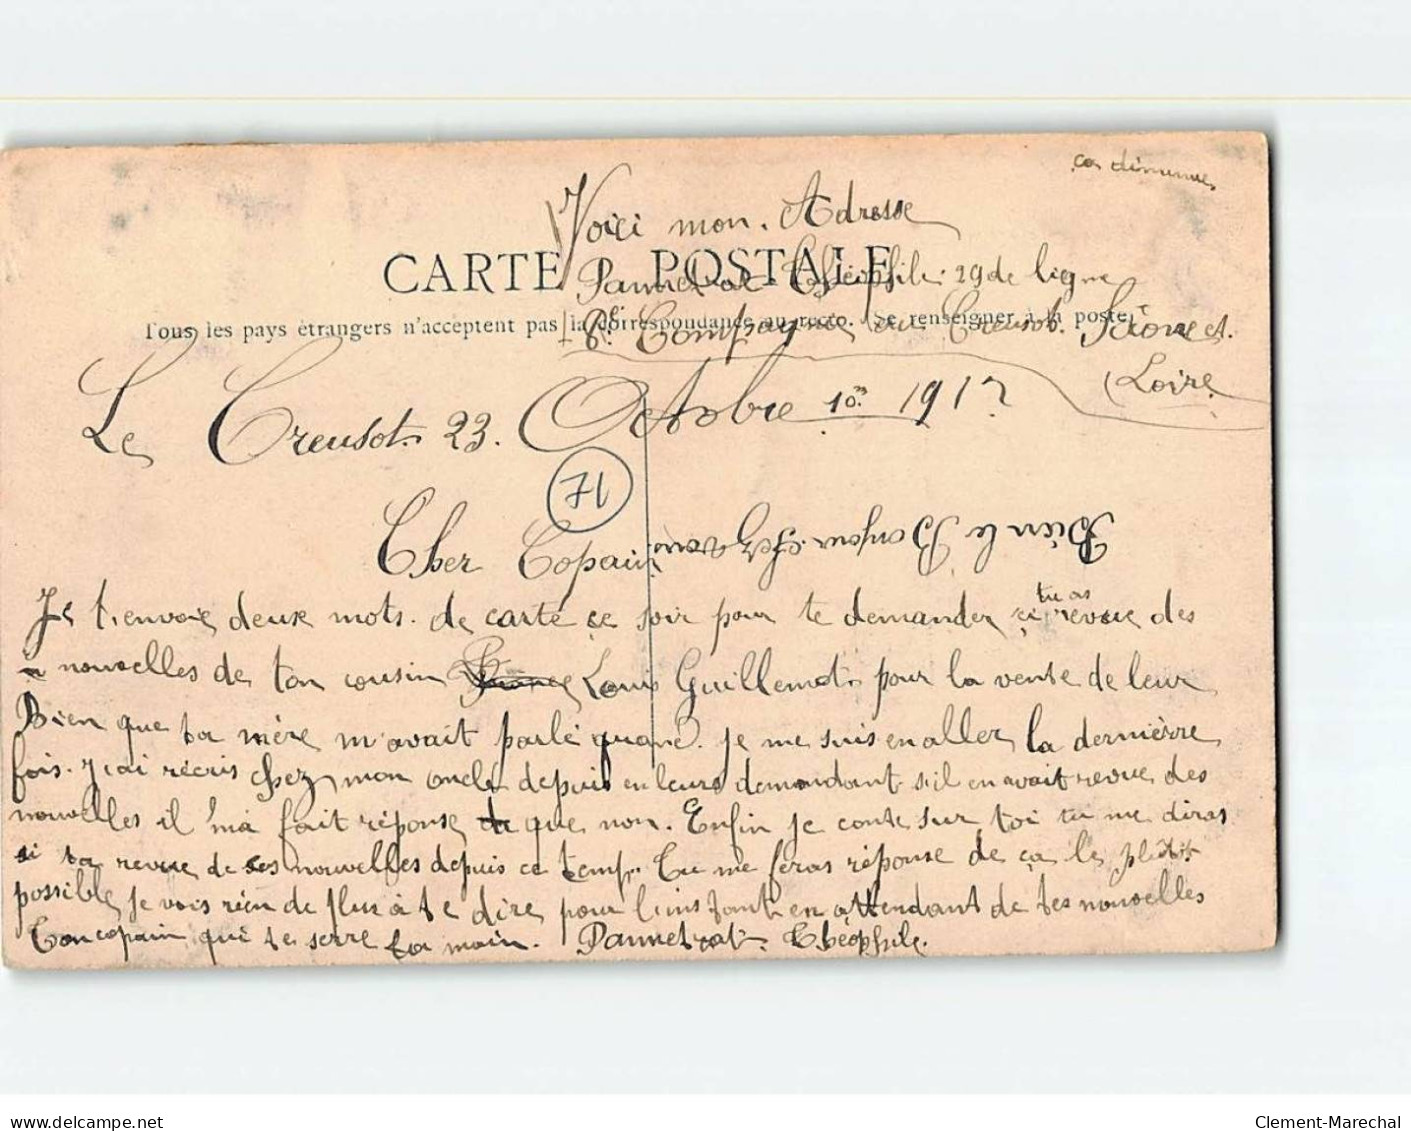 ça diminue
Voici mon. Adresse
CARTE POSTALE
Pannetrat Théophile. 29 de ligne
Tous les pays étrangers n'acceptent pas la correspondance au recto. (Se renseigner à la poste)
6e Compagnie au Creusot. Saône et.
(Loire
Le Creusot. 23. Octobre 1912
71
Cher Copain
Bien le Bonjour chez vous
Je t'envoie deuse mots. de carte ce soir pour te demander si tu as revue des
nouvelles de ton cousin Louis Guillemot. pour la vente de leur
Bien que ta mère m'avait parlé quand. je me suis en aller la dernièrre
fois. J'ai récris chez mon oncle depuis en leurs demandant s'il en avait revue des
nouvelles il m'a fait réponse que non. Enfin je conte sur toi tu me diras
si ta revue de ses nouvelles depuis ce temp. Tu me feras réponse de ça le plutôt
possible, je vois rien de plus à te dire, pour l'instant. en attendant de tes nouvelles
Ton copain qui te serre la main. Pannetrat. Théophile.
delcampe.net
Clement-Marechal